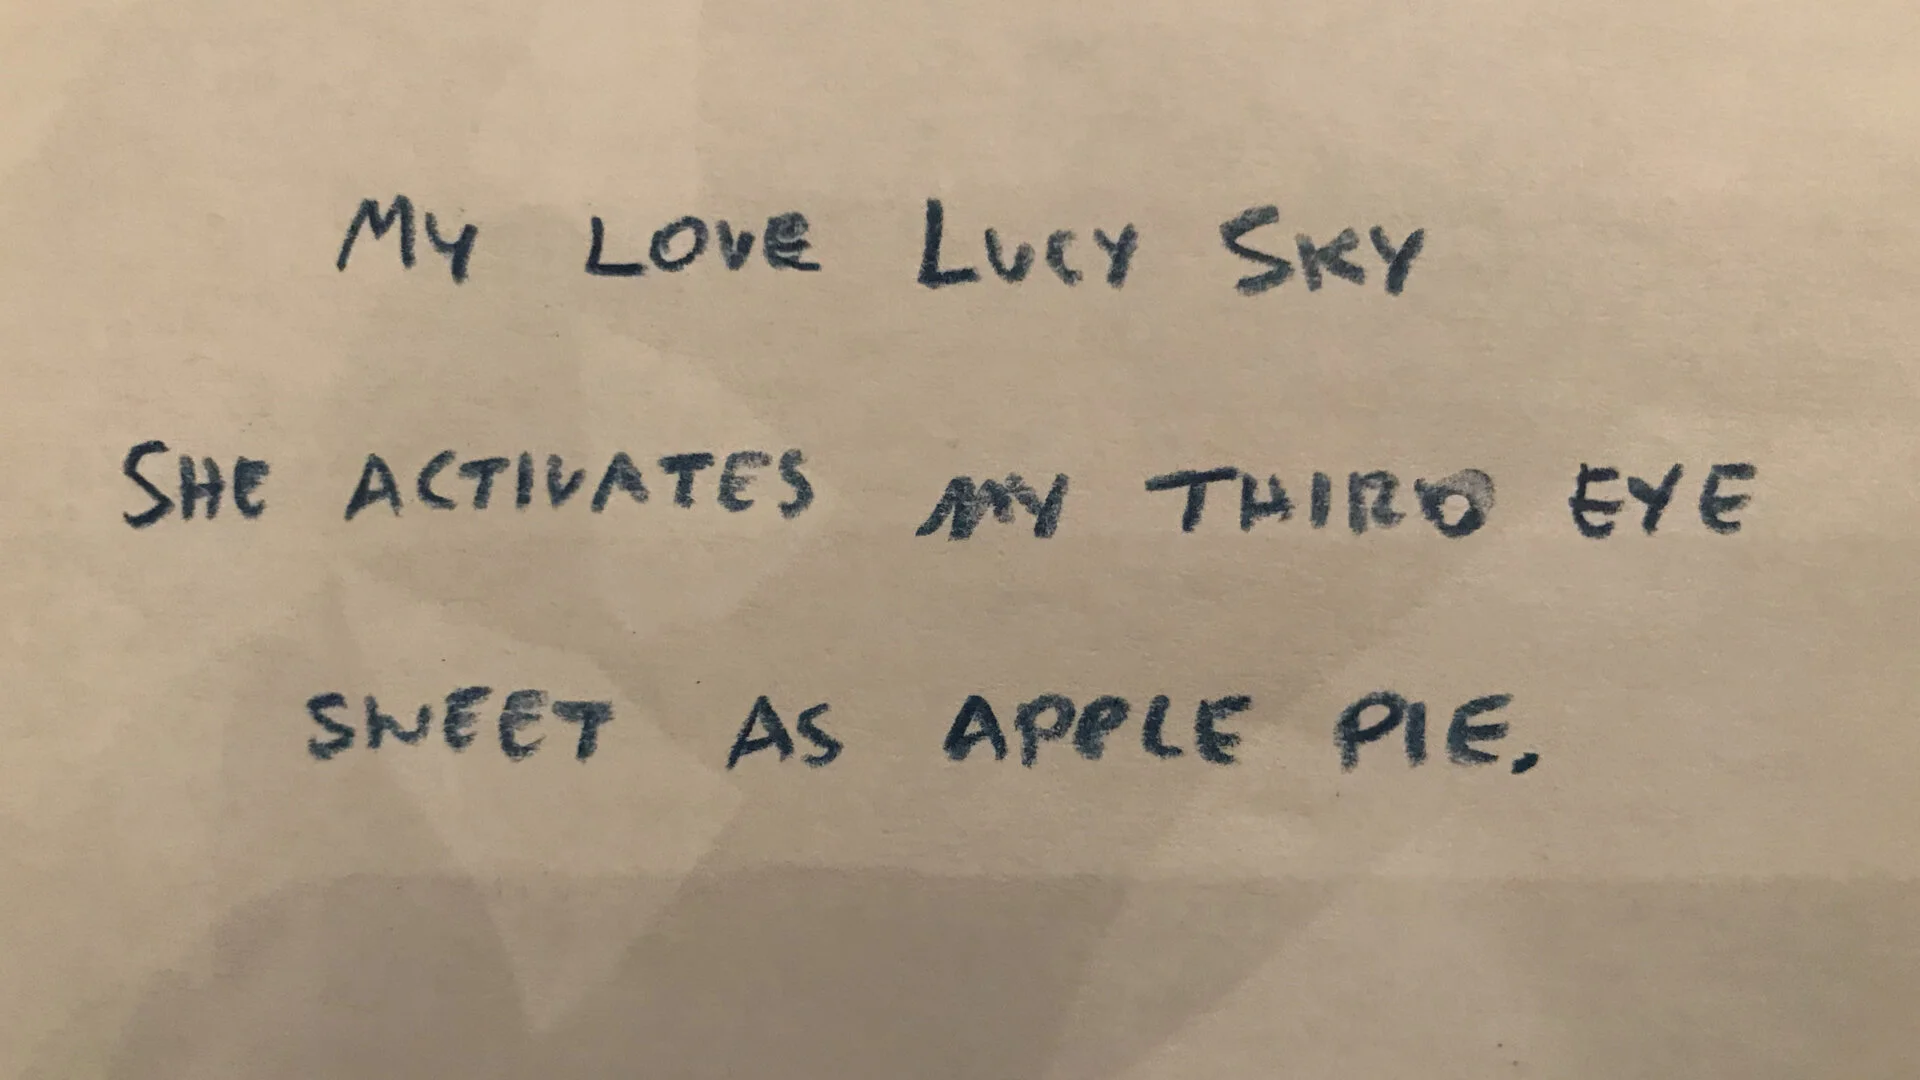 My LOVE LUCY SKY
SHE ACTIVATES MY THIRD EYE
SWEET AS APPLE PIE.